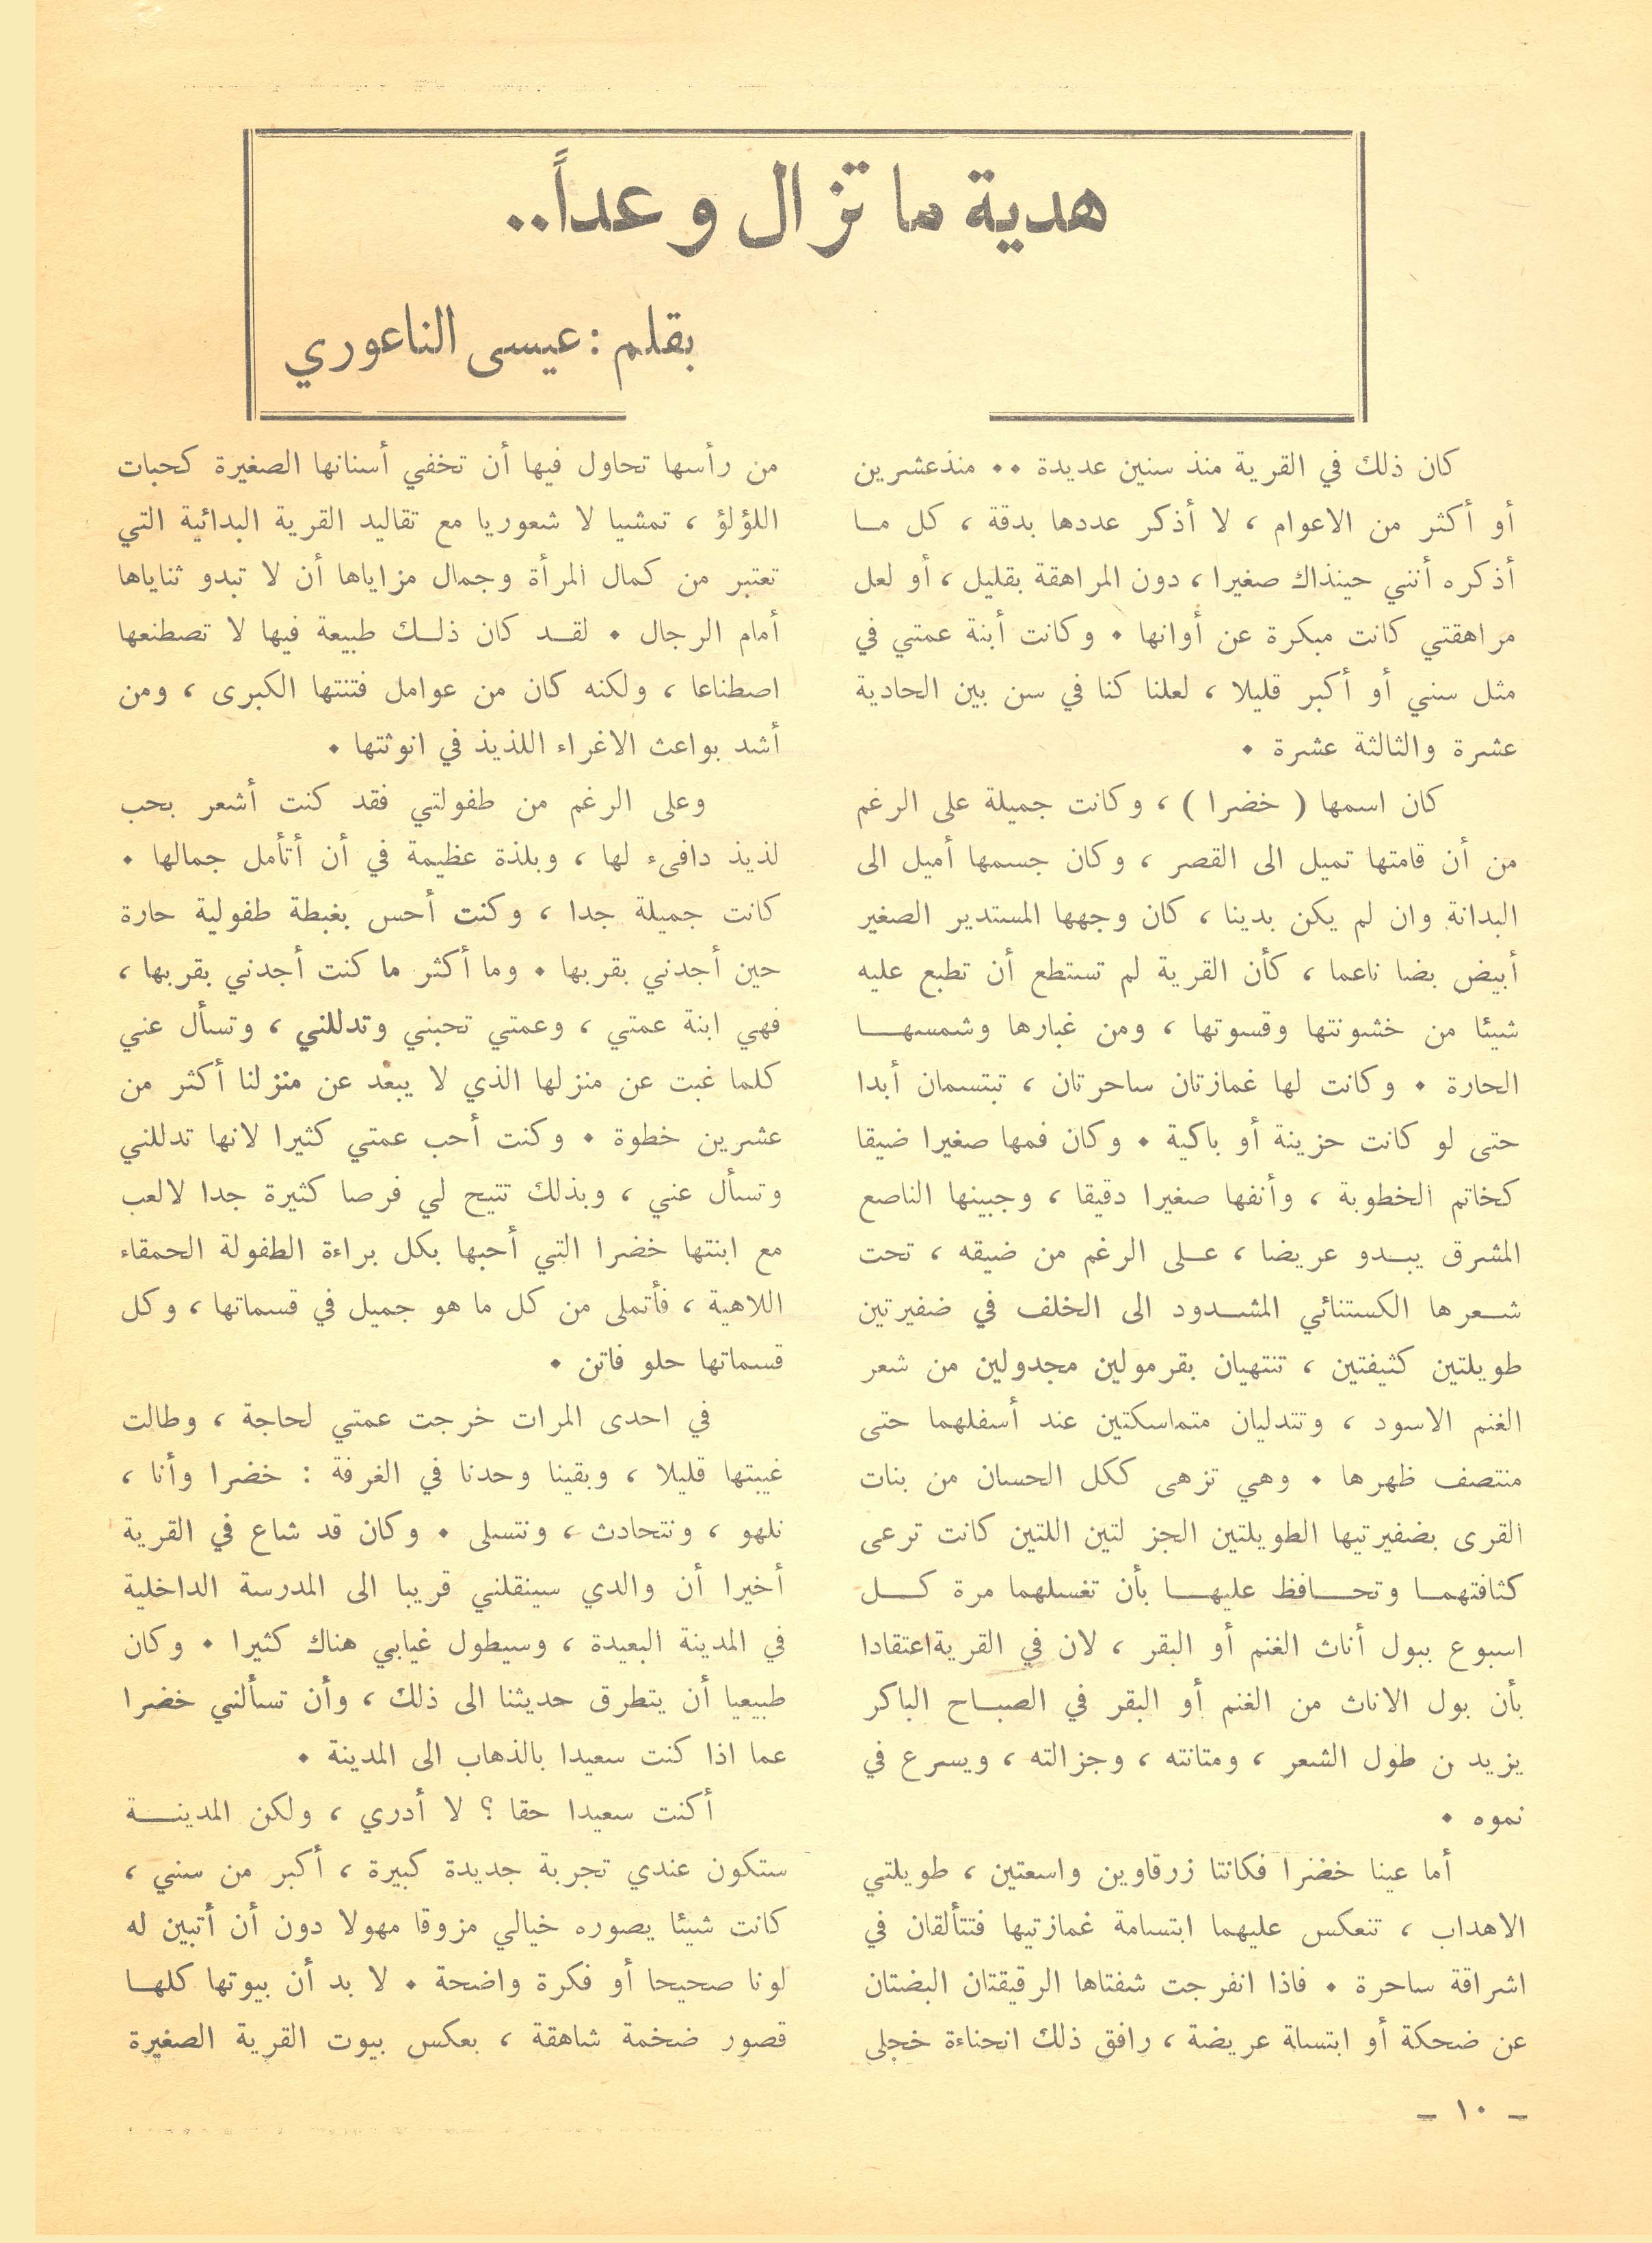 هدية ما تزال وعداً..
بقلم : عيسى الناعوري
كان ذلك في القرية منذ سنين عديدة ٠٠ منذعشرين
أو أكثر من الاعوام ، لا أذكر عددها بدقة ، كل مــا
أذكره أنني حينذاك صغيرا ، دون المراهقة بقليل ، أو لعل
مراهقتي كانت مبكرة عن أوانها ٠ وكانت أبنة عمتي في
مثل سني أو أكبر قليلا ، لعلنا كنا في سن بين الحادية
عشرة والثالثة عشرة ٠
كان اسمها ( خضرا ) ، وكانت جميلة على الرغم
من أن قامتها تميل الى القصر ، وكان جسمها أميل الى
البدانة وان لم يكن بدينا ، كان وجهها المستدير الصغير
أبيض بضا ناعما ، كأن القرية لم تستطع أن تطبع عليه
شيئا من خشونتها وقسوتها ، ومن غبارها وشمسهــا
الحارة ٠ وكانت لها غمازتان ساحرتان ، تبتسمان أبدا
حتى لو كانت حزينة أو باكية ٠ وكان فمها صغيرا ضيقا
كخاتم الخطوبة ، وأنفها صغيرا دقيقا ، وجبينها الناصع
المشرق يبــدو عريضا ، عــلى الرغم من ضيقه ، تحت
شــعرها الكستنائي المشــدود الى الخلف في ضفيرتين
طويلتين كثيفتين ، تنتهيان بقرمولين مجدولين من شعر
الغنم الاسود ، وتتدليان متماسكتين عند أسفلهما حتى
منتصف ظهرها ٠ وهي تزهى ككل الحسان من بنات
القرى بضفيرتيها الطويلتين الجز لتين اللتين كانت ترعى
كثافتهمــا وتحــافظ عليهــا بأن تغسلهما مرة كــل
اسبوع ببول أناث الغنم أو البقر ، لان في القريةاعتقادا
بأن بول الاناث من الغنم أو البقر في الصبــاح الباكر
يزيد ن طول الشعر ، ومتانته ، وجزالته ، ويسرع في
نموه ٠
أما عينا خضرا فكانتا زرقاوين واسعتين ، طويلتي
الاهداب ، تنعكس عليهما ابتسامة غمازتيها فتتألقان في
اشراقة ساحرة ٠ فاذا انفرجت شفتاها الرقيقتان البضتان
عن ضحكة أو ابتسالة عريضة ، رافق ذلك انحناءة خجلى
من رأسها تحاول فيها أن تخفي أسنانها الصغيرة كحبات
اللؤلؤ ، تمشيا لا شعوريا مع تقاليد القرية البدائية التي
تعتبر من كمال المرأة وجمال مزاياها أن لا تبدو ثناياها
أمام الرجال ٠ لقــد كان ذلــك طبيعة فيها لا تصطنعها
اصطناعا ، ولكنه كان من عوامل فتنتها الكبرى ، ومن
أشد بواعث الاغراء اللذيذ في انوثتها ٠
وعلى الرغم من طفولتي فقد كنت أشعر بحب
لذيذ دافىء لها ، وبلذة عظيمة في أن أتأمل جمالها ٠
كانت جميلة جدا ، وكنت أحس بغبطة طفولية حارة
حين أجدني بقربها ٠ وما أكثر ما كنت أجدني بقربها ،
فهي ابنة عمتي ، وعمتي تحبني وتدللني ، وتسأل عني
كلما غبت عن منزلها الذي لا يبعد عن منزلنا أكثر من
عشرين خطوة ٠ وكنت أحب عمتي كثيرا لانها تدللني
وتسأل عني ، وبذلك تتيح لي فرصا كثيرة جدا لالعب
مع ابنتها خضرا التي أحبها بكل براءة الطفولة الحمقاء
اللاهية ، فأتملى من كل ما هو جميل في قسماتها ، وكل
قسماتها حلو فاتن ٠
في احدى المرات خرجت عمتي لحاجة ، وطالت
غيبتها قليلا ، وبقينا وحدنا في الغرفة : خضرا وأنا ،
نلهو ، ونتحادث ، ونتسلى ٠ وكان قد شاع في القرية
أخيرا أن والدي سينقلني قريبا الى المدرسة الداخلية
في المدينة البعيدة ، وسيطول غيابي هناك كثيرا ٠ وكان
طبيعيا أن يتطرق حديثنا الى ذلك ، وأن تسألني خضرا
عما اذا كنت سعيدا بالذهاب الى المدينة ٠
أكنت سعيدا حقا ؟ لا أدري ، ولكن المدينــة
ستكون عندي تجربة جديدة كبيرة ، أكبر من سني ،
كانت شيئا يصوره خيالي مزوقا مهولا دون أن أتبين له
لونا صحيحا أو فكرة واضحة ٠ لا بد أن بيوتها كلهــا
قصور ضخمة شاهقة ، بعكس بيوت القرية الصغيرة
– ١٠ –